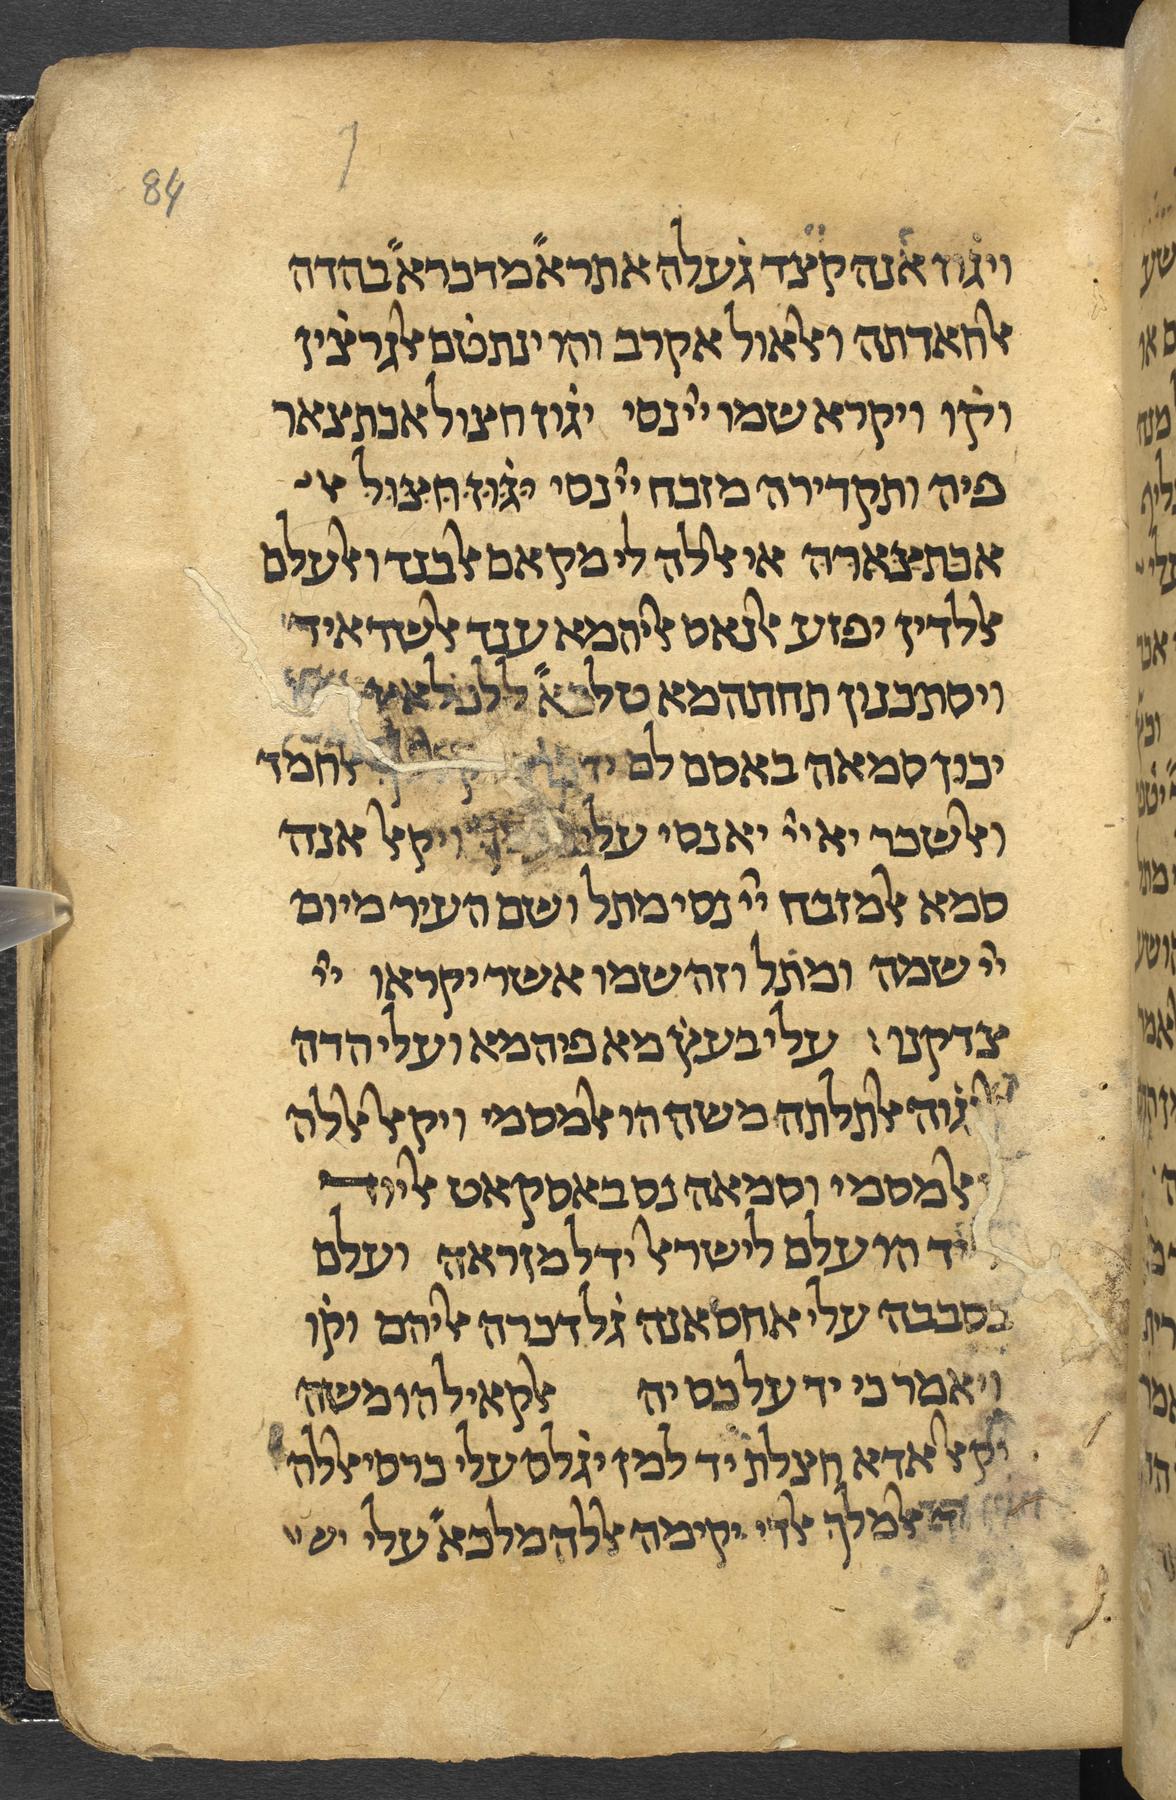 84
ויגוז אנה קצד ג֗עלה אתרא֞ מדכרא֞ בהדה
אלחאדתה ואלאול אקרב והו ינתט֗ם אלגרצ֗ין
וקו֗ ויקרא שמו ייי נסי יגוז חצול אכתצאר
פיה ותקדירה מזבח ייי נסי יגוז חצול אל
אכתצארה אי אללה לי מקאם אלבנד ואלעלם
אלדין יפזע אלנאס אליהמא ענד אלשדאיד
ויסתכנון תחתהמא טלבא֞
יכון סמאה באסם לם אלחמד
ואלשכר יא ייי יא נסי עלי ויקאל אנה
סמא אלמזבח ייי נסי מתל ושם העיר מיום
ייי שמה ומת֗ל וזה שמו אשר יקראו ייי
צדקנו : עלי בעץ֗ מא פיהמא ועלי הדה
אלתלתה משה הו אלמסמי ויקאל אללה
אלמסמי וסמאה נס באסקאט אליוד
הו עלם לישראל ידל מזראה ועלם
בסבבה עלי אחסאנה ג֗ל דכרה אליהם וקו֗
ויאמר כי יד על כס יה אלקאיל הו משה
יקאל אדא חצלת יד למן יג֗לס עלי כרסי אללה
אלמלך אלדי יקימה אללה מלכא֞ עלי יש